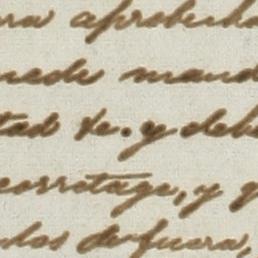 ra aprobecha
uede mand
tad &c. y debe
corretage, y q
los de fuera,